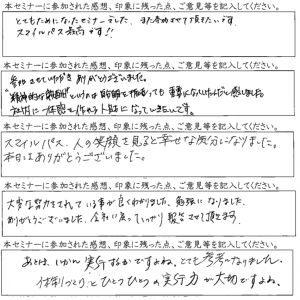 本セミナーに参加された感想、印象に残った点、ご意見等を記入してください。
とてもためになったセミナーでした。また参加させて頂きたいです。
スマイルパス最高です!!
本セミナーに参加された感想、印象に残った点、ご意見等を記入してください。
参加させていただきありがとうございました。
"精神的な報酬"というのは
重要なんだと感じました。
本セミナーに参加された感想、印象に残った点、ご意見等を記入してください。
スマイルパス、人の笑顔を見ると幸せな気分になりました。
本日はありがとうございました。
本セミナーに参加された感想、印象に残った点、ご意見等を記入してください。
大変な努力をされている事が良くわかりました。勉強になりました。
ありがとうございました。会社に戻ってしっかり報告させて頂きます。
本セミナーに参加された感想、印象に残った点、ご意見等を記入してください。
あとは、いかに実行するかですよね。とても参考になりました。
体制づくりとひとつひとつの実行力が大切ですよね。